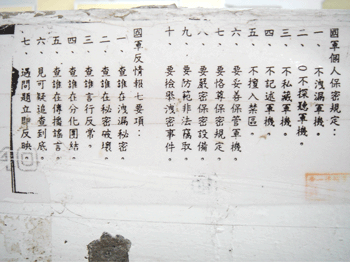 國軍個人保密規定：
一、不洩漏軍機。
二、不探聽軍機。
三、不私藏軍機。
四、不記述軍機。
五、不擅入禁區。
六、要妥善保管軍機。
七、要恪尊保密規定。
八、要嚴密保密設備。
九、要防範非法竊取。
十、要檢舉洩密事件。
國軍反情報七要項：
一、查誰在洩漏秘密。
二、查誰在秘密破壞。
三、查誰言行反常。
四、查誰在分化團結。
五、查誰在傳播謠言。
六、見可疑追查到底。
七、遇問題立即反映。